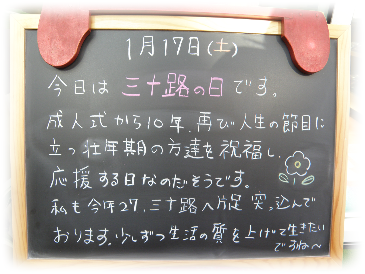 1月17日(土)
今日は三十路の日です。
成人式から10年、再び人生の節目に
立つ壮年期の方達を祝福し、
応援する日なのだそうです。
私も今年27、三十路へ片足突っ込んで
おります。少しずつ生活の質を上げて生きたい
ですね～